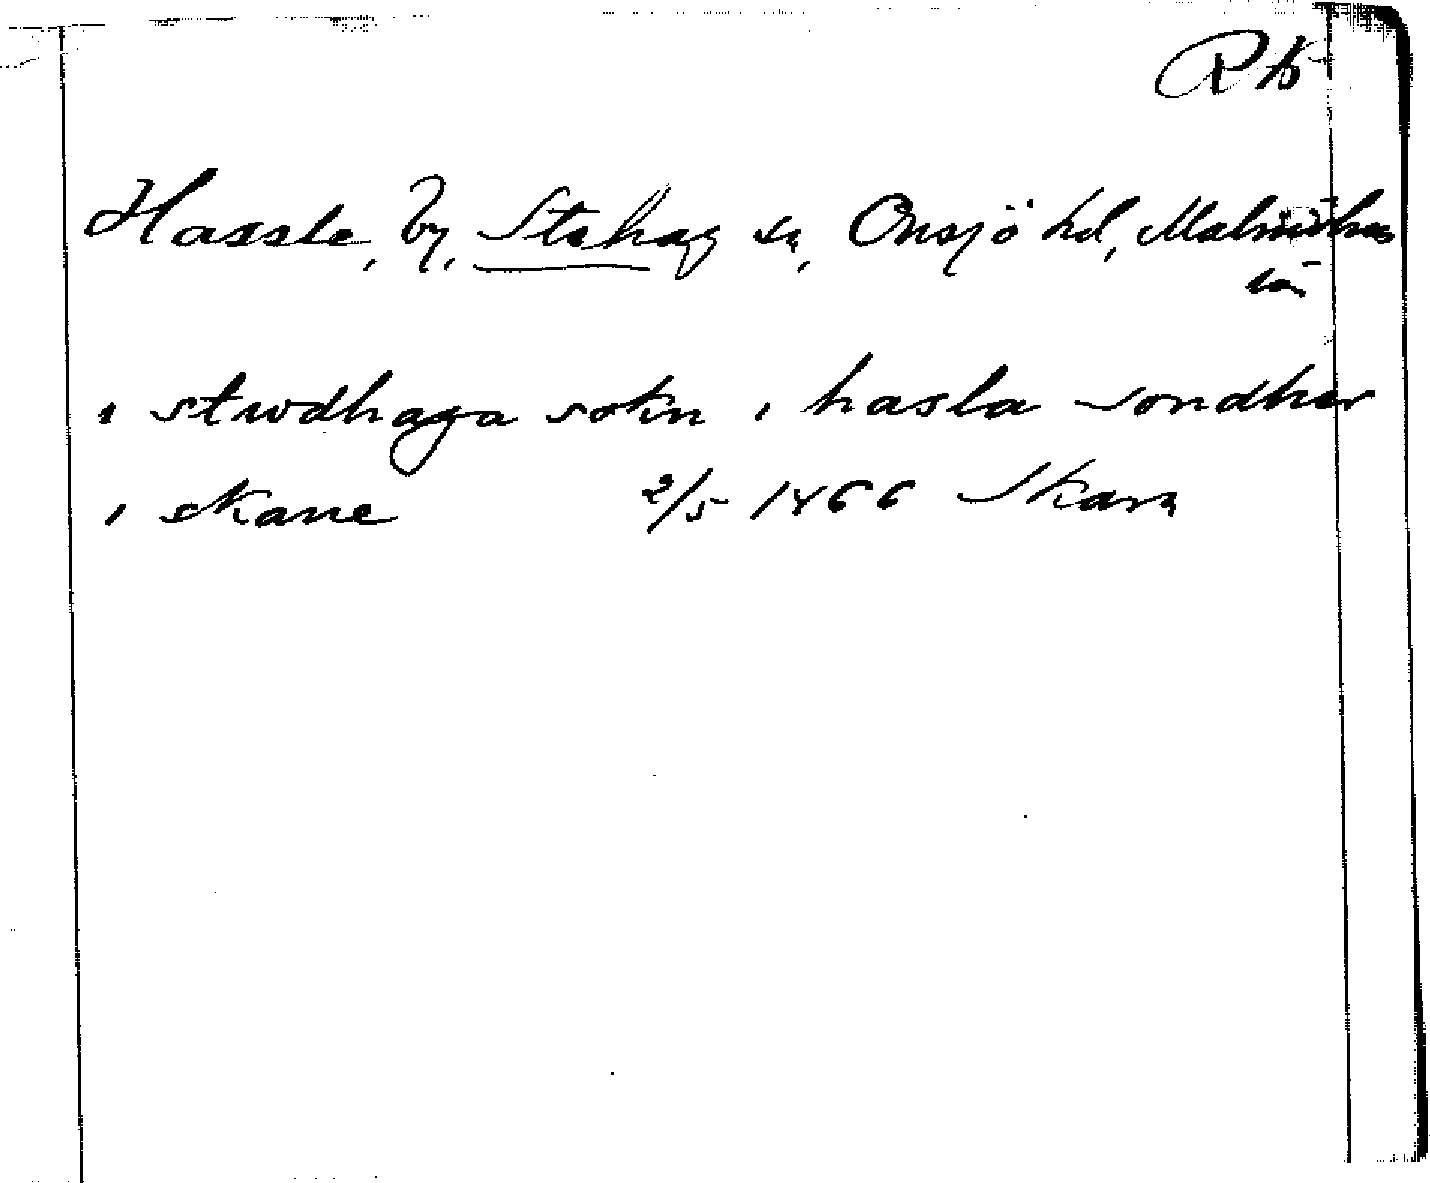 Rb
Hassle, by, Stehag sn, Onsjö hd, Malmöhus
län
i stwdhaga sokn i hasla sondher
i skane 2/5 1466 Skara